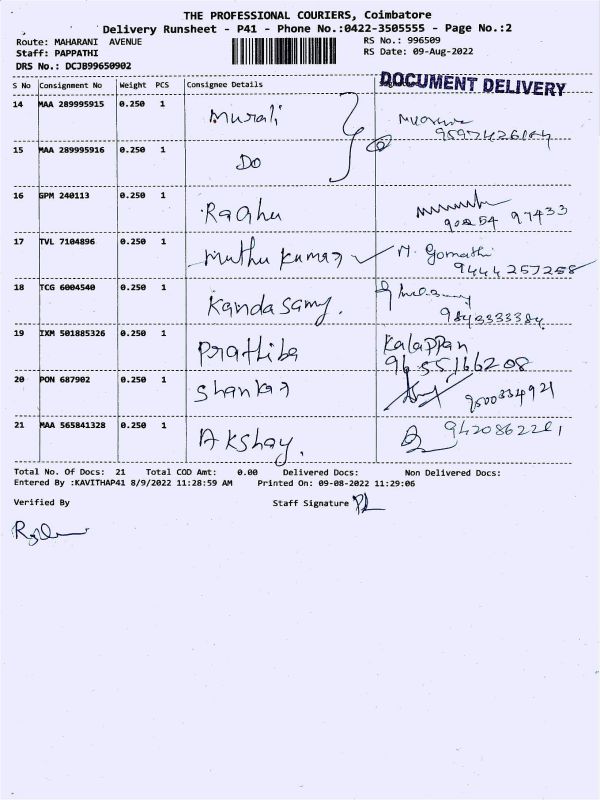 THE PROFESSIONAL COURIERS, Coimbatore
Delivery Runsheet - P41 - Phone No.:0422-3505555 - Page No.:2
Route: MAHARANI AVENUE
RS No.: 996509
Staff: PAPPATHI
RS Date: 09-Aug-2022
DRS No.: DCJB99650902
S No Consignment No Weight PCS Consignee Details
DOCUMENT DELIVERY
14 MAA 289995915 0.250 1 Murali
15 MAA 289995916 0.250 1 Do
16 GPM 240113 0.250 1 Raghu 90254 97433
17 TVL 7104896 0.250 1 Muthu kumar M. Gomathi
9444257258
18 TCG 6004540 0.250 1 Kandasamy.
9843333384
19 IXM 501885326 0.250 1 Prathiba Kalappan
9655166208
20 PON 687902 0.250 1 Shankar 9500334921
21 MAA 565841328 0.250 1 Akshay. 9420862261
Total No. Of Docs: 21 Total COD Amt: 0.00 Delivered Docs: Non Delivered Docs:
Entered By :KAVITHAP41 8/9/2022 11:28:59 AM Printed On: 09-08-2022 11:29:06
Verified By Staff Signature